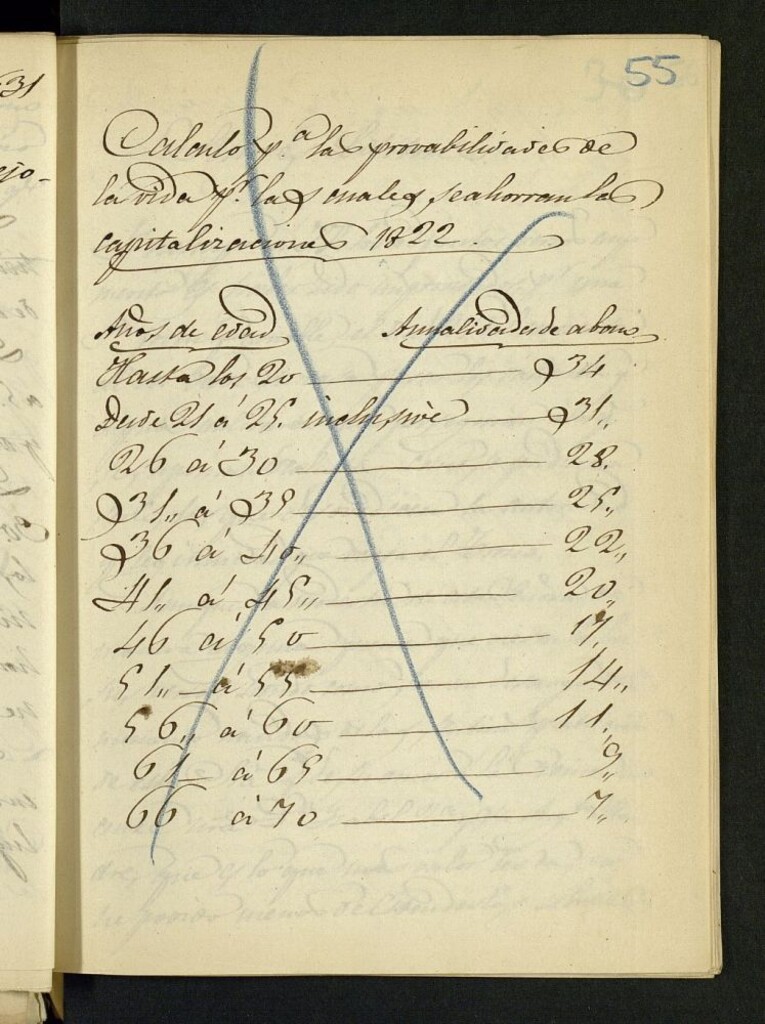 55
Calculo p.a las provabilidades de
la vida pr. las cuales, se ahorran las
capitalizaciones 1822.
Años de edad Anualidades de abono
Hasta los 20 34
Desde 21 á 25. inclusive 31„
26 á 30 28.
31„ á 35 25„
36 á 40„ 22„
41„ á 45„ 20„
46 á 50 17„
51„ á 55 14„
56„ á 60 11„
61 á 65 9„
66 á 70 7„
631
ejo-